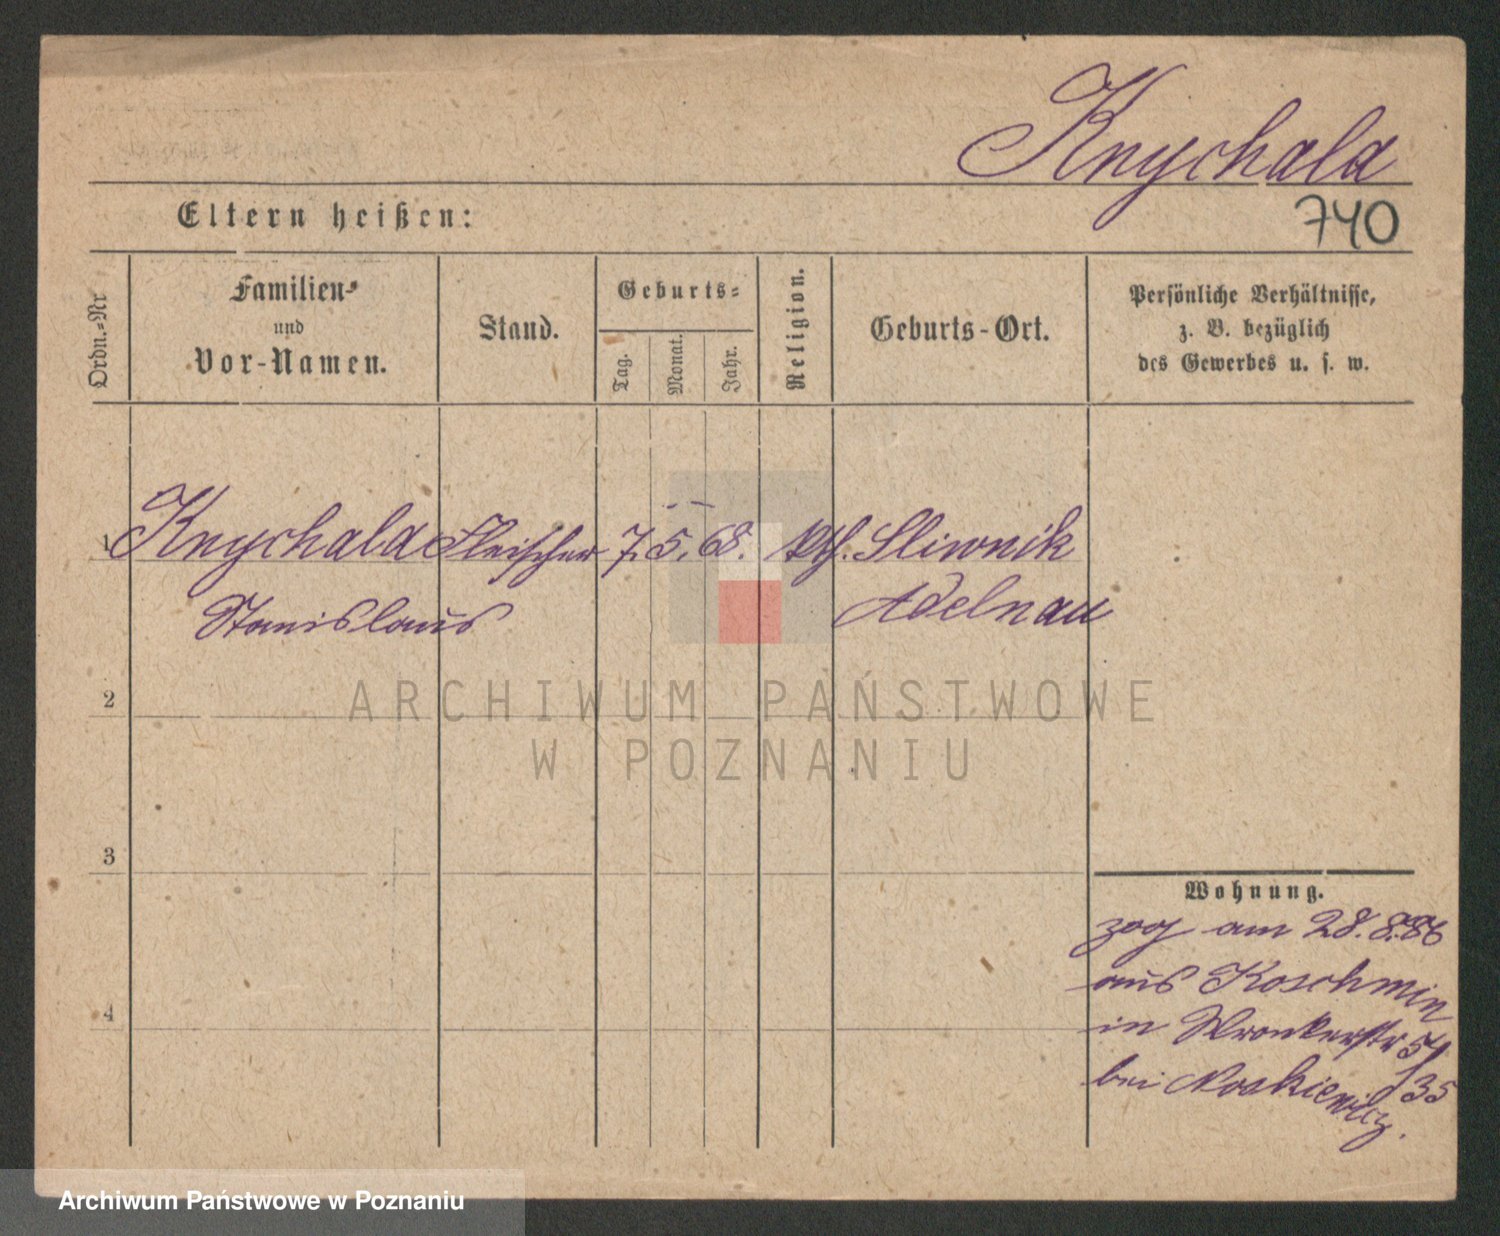 Knychala
740
Eltern heißen:
Ordn.=Nr
Familien=
und
Vor-Namen.
Stand.
Geburts=
Tag.
Monat.
Jahr.
Religion.
Geburts-Ort.
Persönliche Verhältnisse,
z. B. bezüglich
des Gewerbes u. s. w.
1 Knychala Fleischer 7. 5. 68. kth. Sliwnik
Stanislaus Adelnau
ARCHIWUM PAŃSTWOWE
W POZNANIU
2
3
4
Wohnung.
zog am 28. 8. 86
aus Koschmin
in Wronkerstr
bei Noskiewicz.
Archiwum Państwowe w Poznaniu